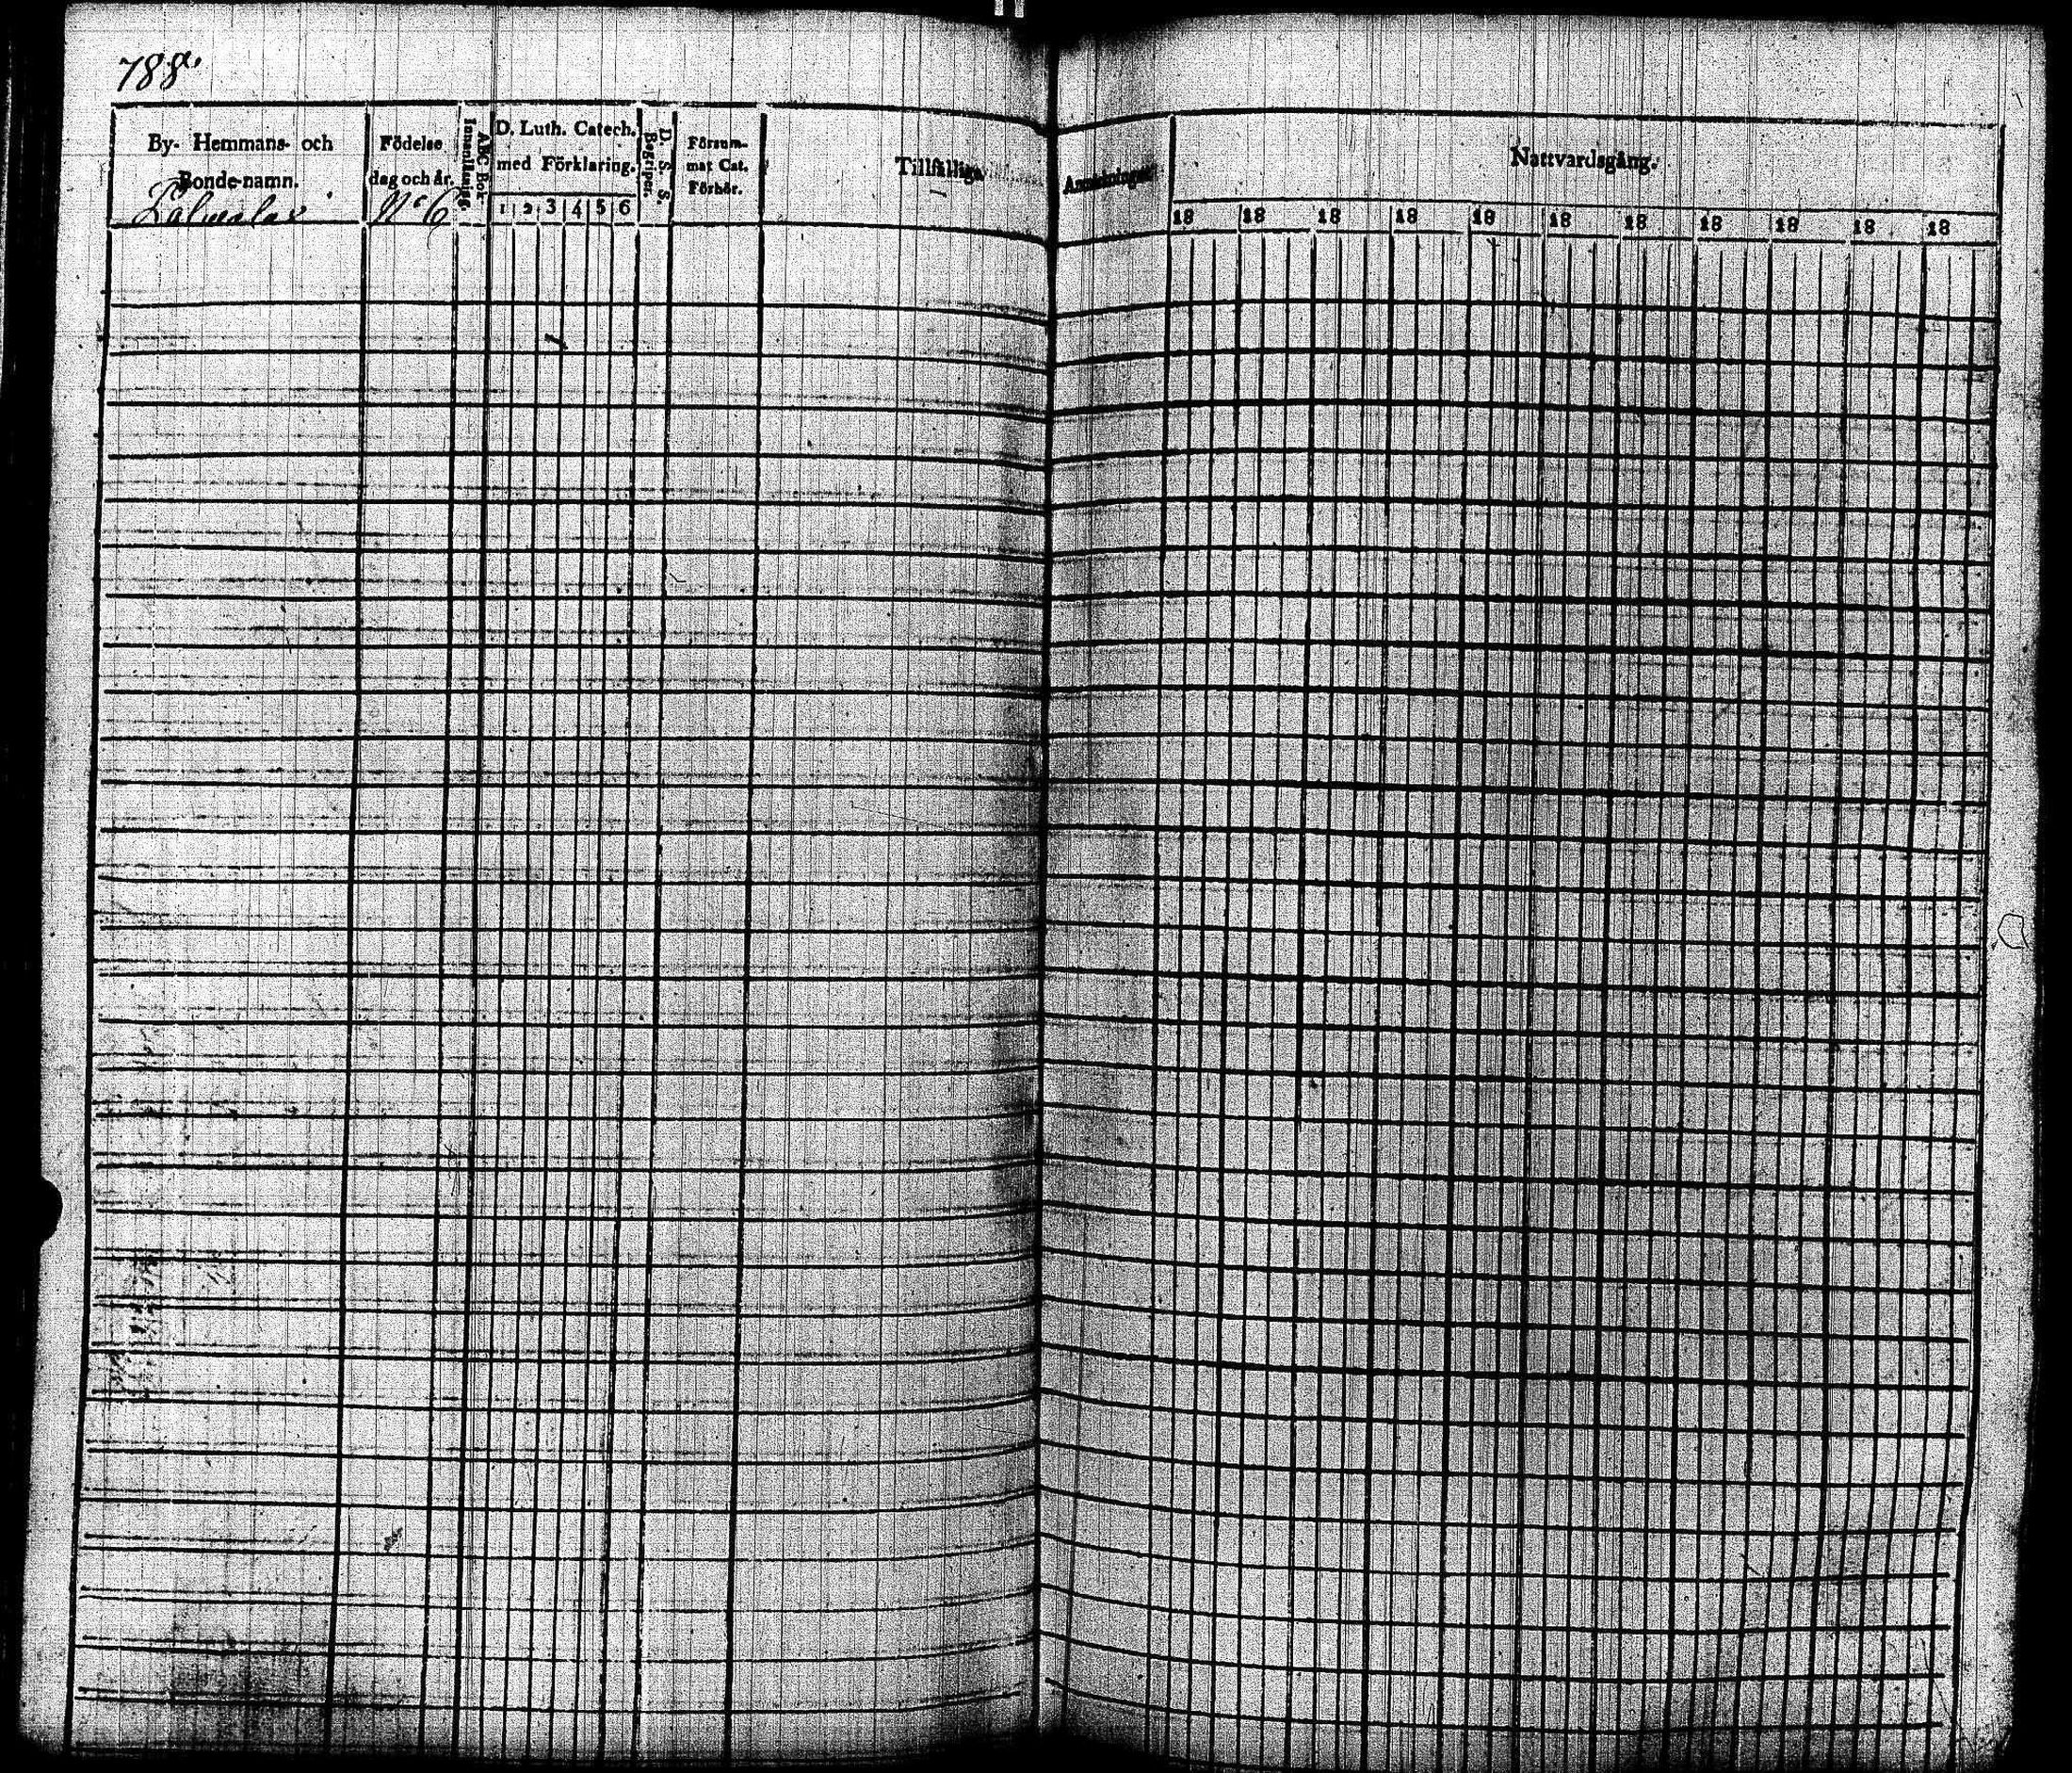 788a.
By- Hemmans- och
Bonde-namn.
Födelse
dag och år.
Innanläsnig.
ABC Bok
D. Luth. Catech.
med Förklaring.
1 2 3 4 5 6
D. S. S.
Begriper.
Försum-
mat Cat.
Förhör.
Tillfällige
Anmärkningar
Nattvardsgång.
18 18 18 18 18 18 18 18 18 18 18
N:o 6